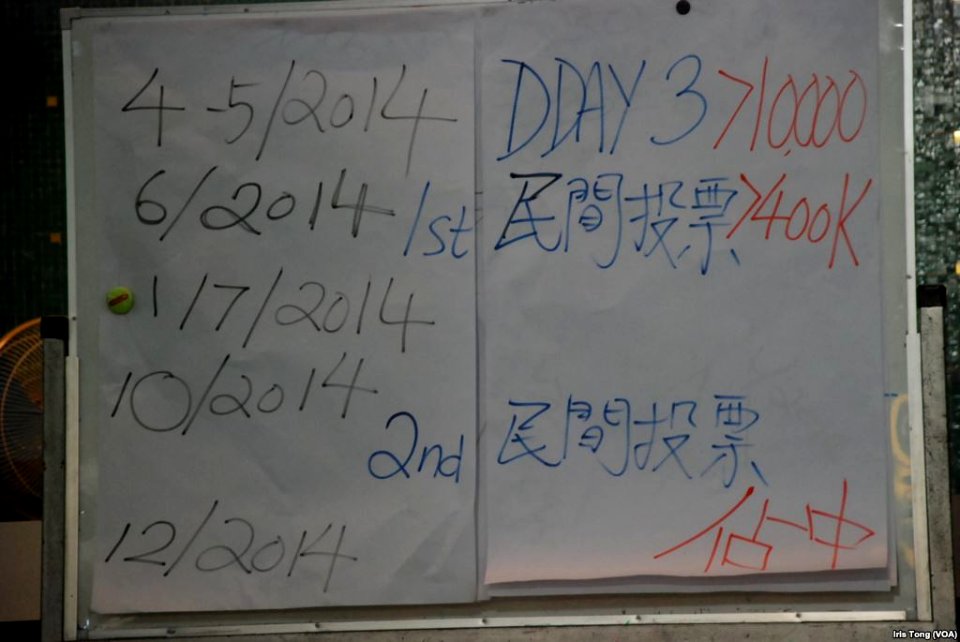 4-5/2014 DDAY 3 >10,000
6/2014 1st 民間投票 >400K
1/7/2014
10/2014
2nd 民間投票
12/2014 佔中
Iris Tong (VOA)